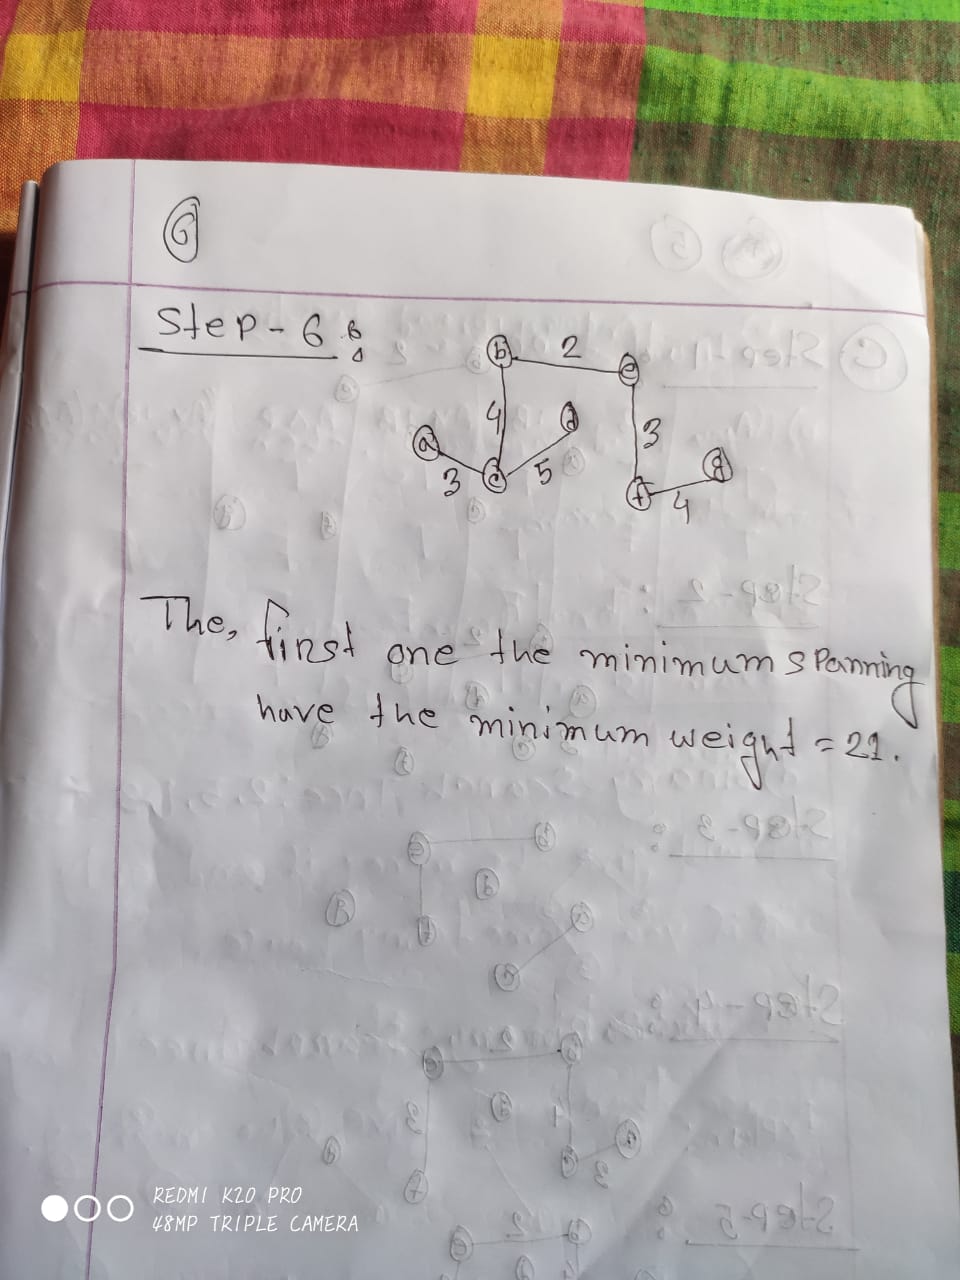 6
Step-6:
b 2 e
4 d 3
a
3 c 5 f 4 g
The, first one the minimum spanning
have the minimum weight = 21.
REDMI K20 PRO
48MP TRIPLE CAMERA